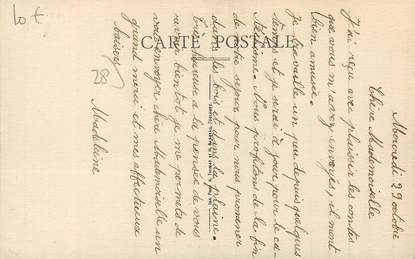 10 €
CARTE POSTALE
28
Mercredi 29 octobre
Chère Mademoiselle
J'ai reçu avec plaisir les contes
que vous m'avez envoyés, ils m'ont
bien amusée.
Je travaille un peu depuis quelques
temps et je serai à jour pour le ca-
téchisme. Nous profitons de la fin
de notre séjour pour nous promener
dans les bois et dans la plaine.
Bien heureuse à la pensée de vous
revoir bientôt je me permets de
vous envoyer chère Mademoiselle un
grand merci et mes affectueux
baisers
Madeleine